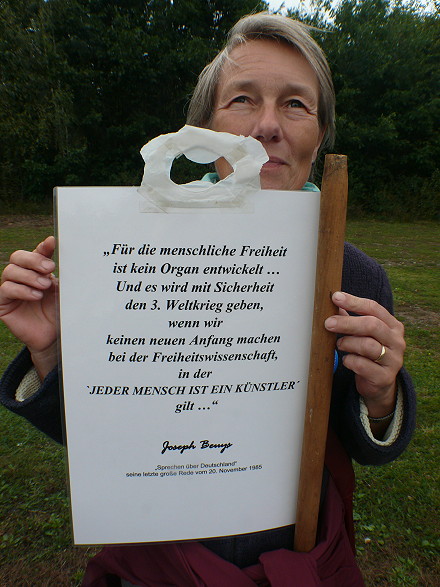 „Für die menschliche Freiheit
ist kein Organ entwickelt ...
Und es wird mit Sicherheit
den 3. Weltkrieg geben,
wenn wir
keinen neuen Anfang machen
bei der Freiheitswissenschaft,
in der
`JEDER MENSCH IST EIN KÜNSTLER´
gilt ...“
Joseph Beuys
„Sprechen über Deutschland"
seine letzte große Rede vom 20. November 1985